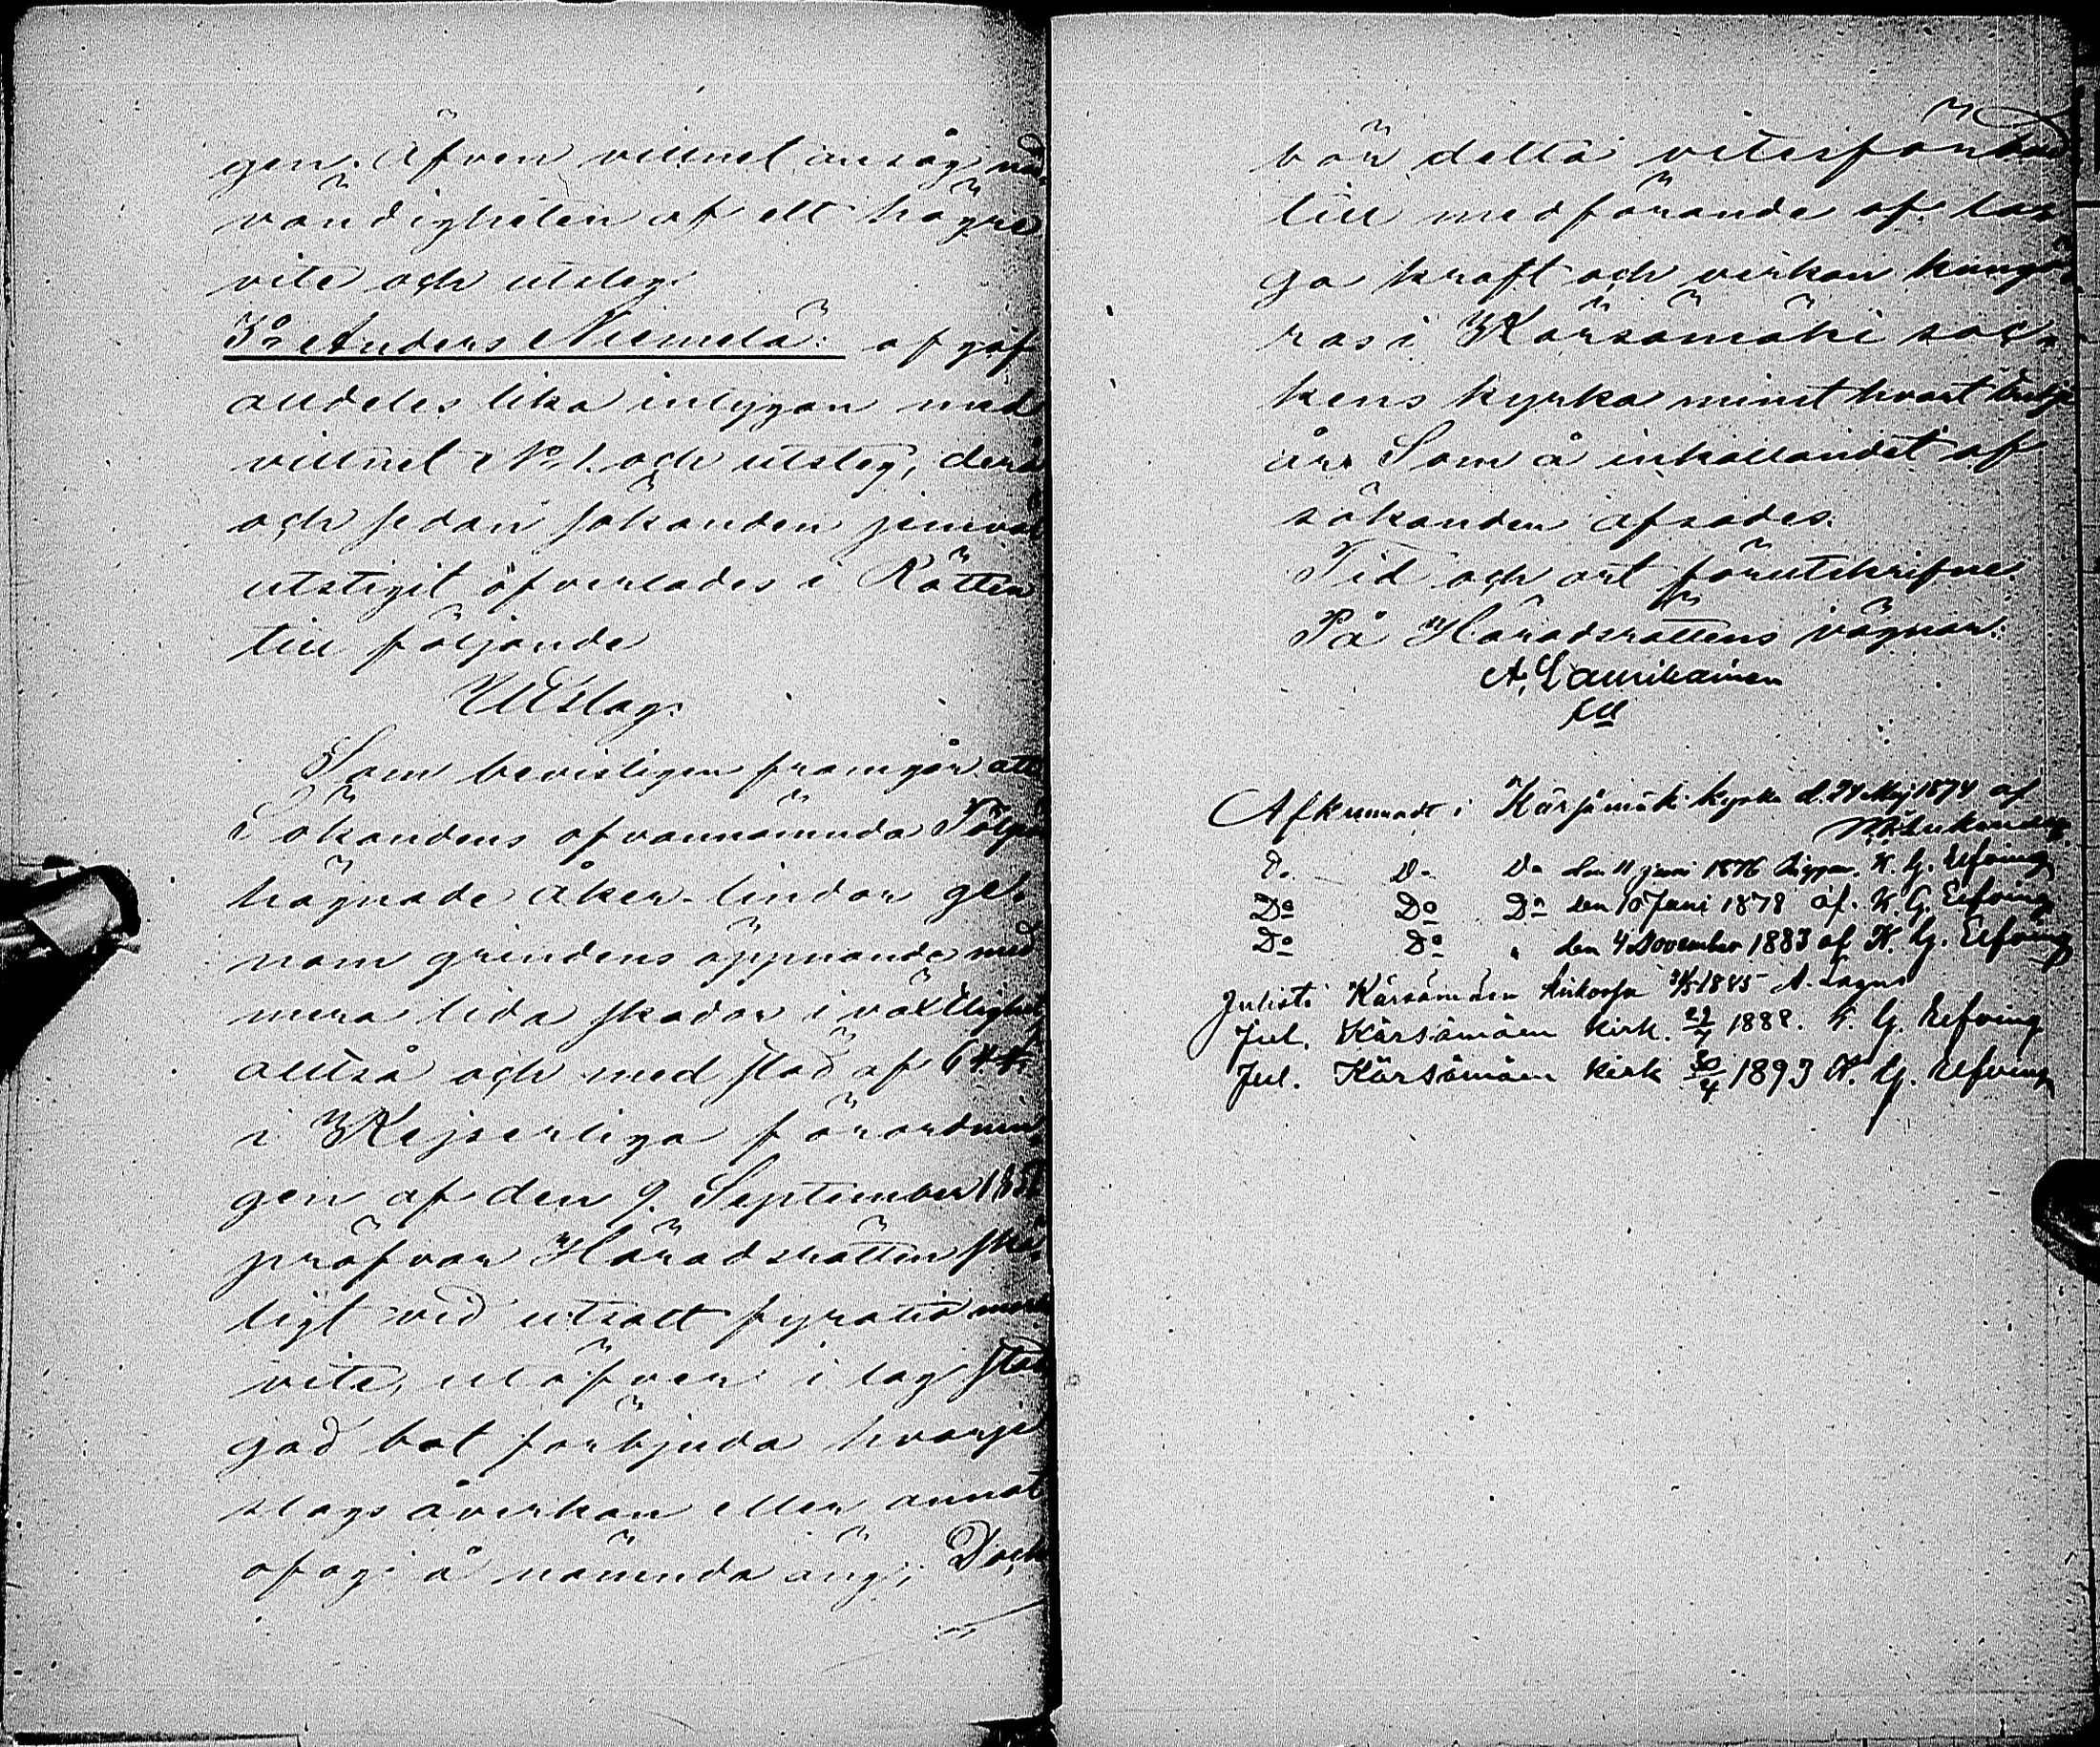 gen. Äfven vittnet ansåg nöd-
vändigheten af ett högre
vite och utsteg.
3o Anders Niemelä: afgaf
alldeles lika intygan med
vittnet No 1. och utsteg, derå
och sedan sökanden jemväl
utstigit öfverlades i Rätten
till följande
Utslag.
Som bevisligen framgår att
Sökandens ofvannämnda
hägnade åker-lindor ge-
nom grindens öppnande med
mera lida skador i växtlighet
alltså och med stöd af 6 §
i Kejserliga förordnin-
gen af den 9. September
pröfvar Häradsrätten skä-
ligt vid utsatt fyratio mark
vite, utöfver i lag stad-
gad bot förbjuda hvarje
slags åverkan eller annat
ofog å nämnda äng; Dock
bör detta vitesförbud
till medförande af lag-
ga kraft och verkan kungö-
ras i Kärsämäki soc-
kens kyrka minst hvart tredje
år. Som å inkallandet af
sökanden afsades.
Tid och ort förutskrifne.
På Häradsrättens vägnar:
A. Laurikainen
Afkunnadt i Kärsämäki kyrka d. 24 Maj 1874 af
Do Do Do den 11 juni 1876 K. G. Elfving
Do Do Do den 10 Juni 1878 af. K. G. Elfving
Do Do " den 4 November 1883 af K. G. Elfving
Julisti Kärsämäen kirkossa 1885 A. Lagus
Jul. Kärsämäen kirk. 29/7 1888. K. G. Elfving
Jul. Kärsämäen kirk 30/4 1893 K. G. Elfving